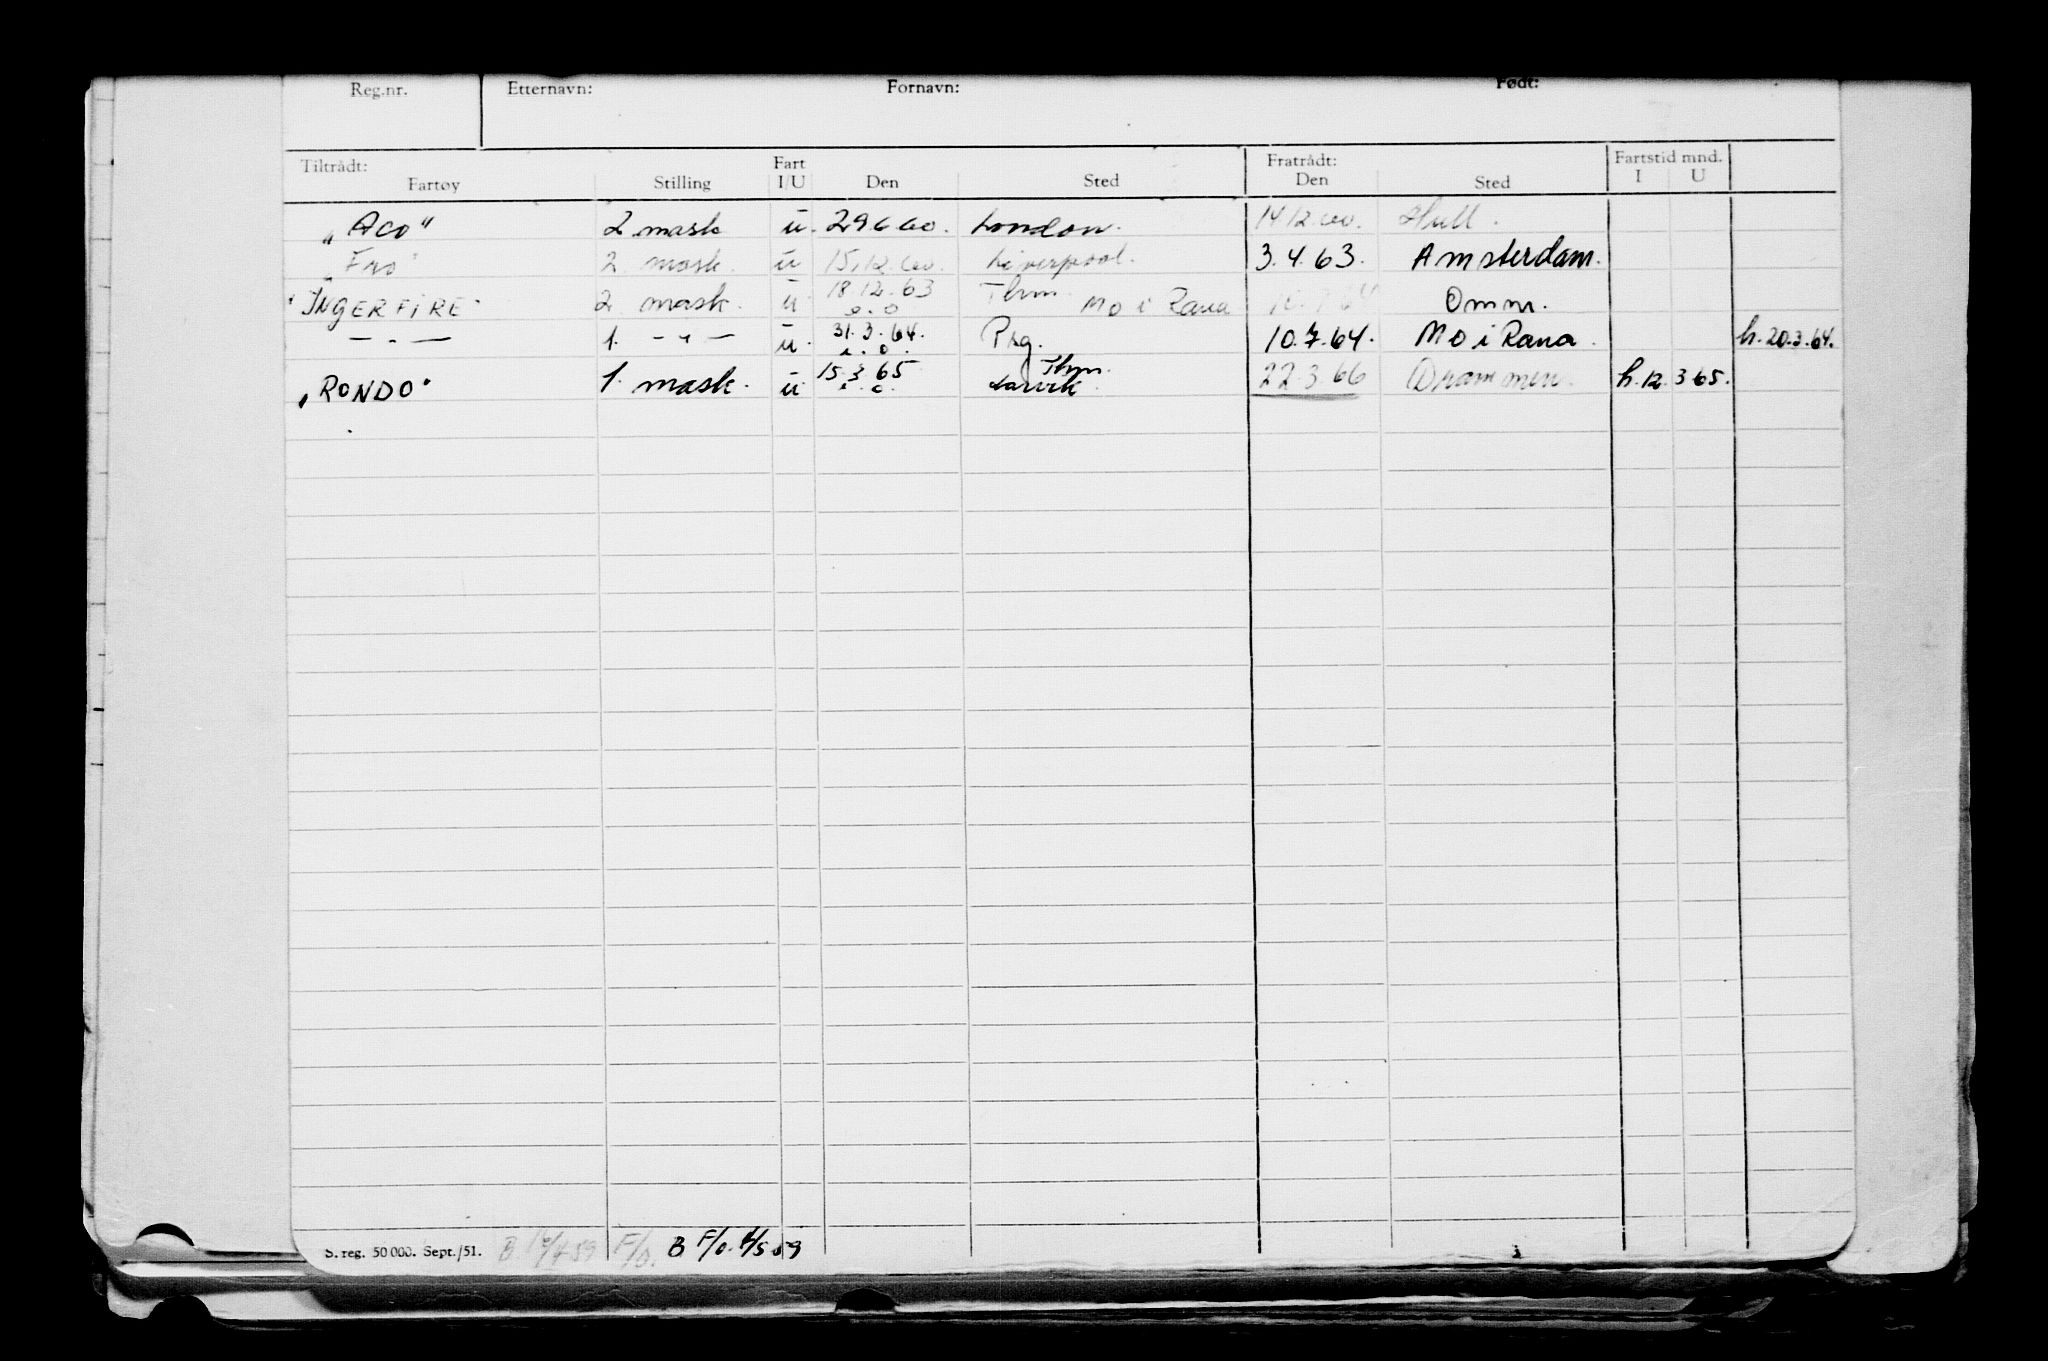 Reg.nr. Etternavn: Fornavn: Født:
Tiltrådt: Fart Fratrådt: Fartstid mnd.
Fartøy Stilling I/U Den Sted Den Sted I U
„Aco" 2 mask u. 29660. London. 14/12.60. Hull.
„Fro" 2. mask. u 15.12.60. Liverpool. 3.4.63. Amsterdam.
"INGERFIRE" 2 mask. u. 18.12.63 Thm. Mo i Rana Omm.
o.o
— " — 1. — " — u. 31.3.64. Prg. 10.7.64. Mo i Rana. h. 20.3.64.
i.o.
„RONDO" 1. mask. u. 15.3.65 Thm. Larvik. 22.3.66 Drammen. h.12.3 65.
i.o.
S. reg. 50 000. Sept./51. B F/o. B F/o. 4/5 59